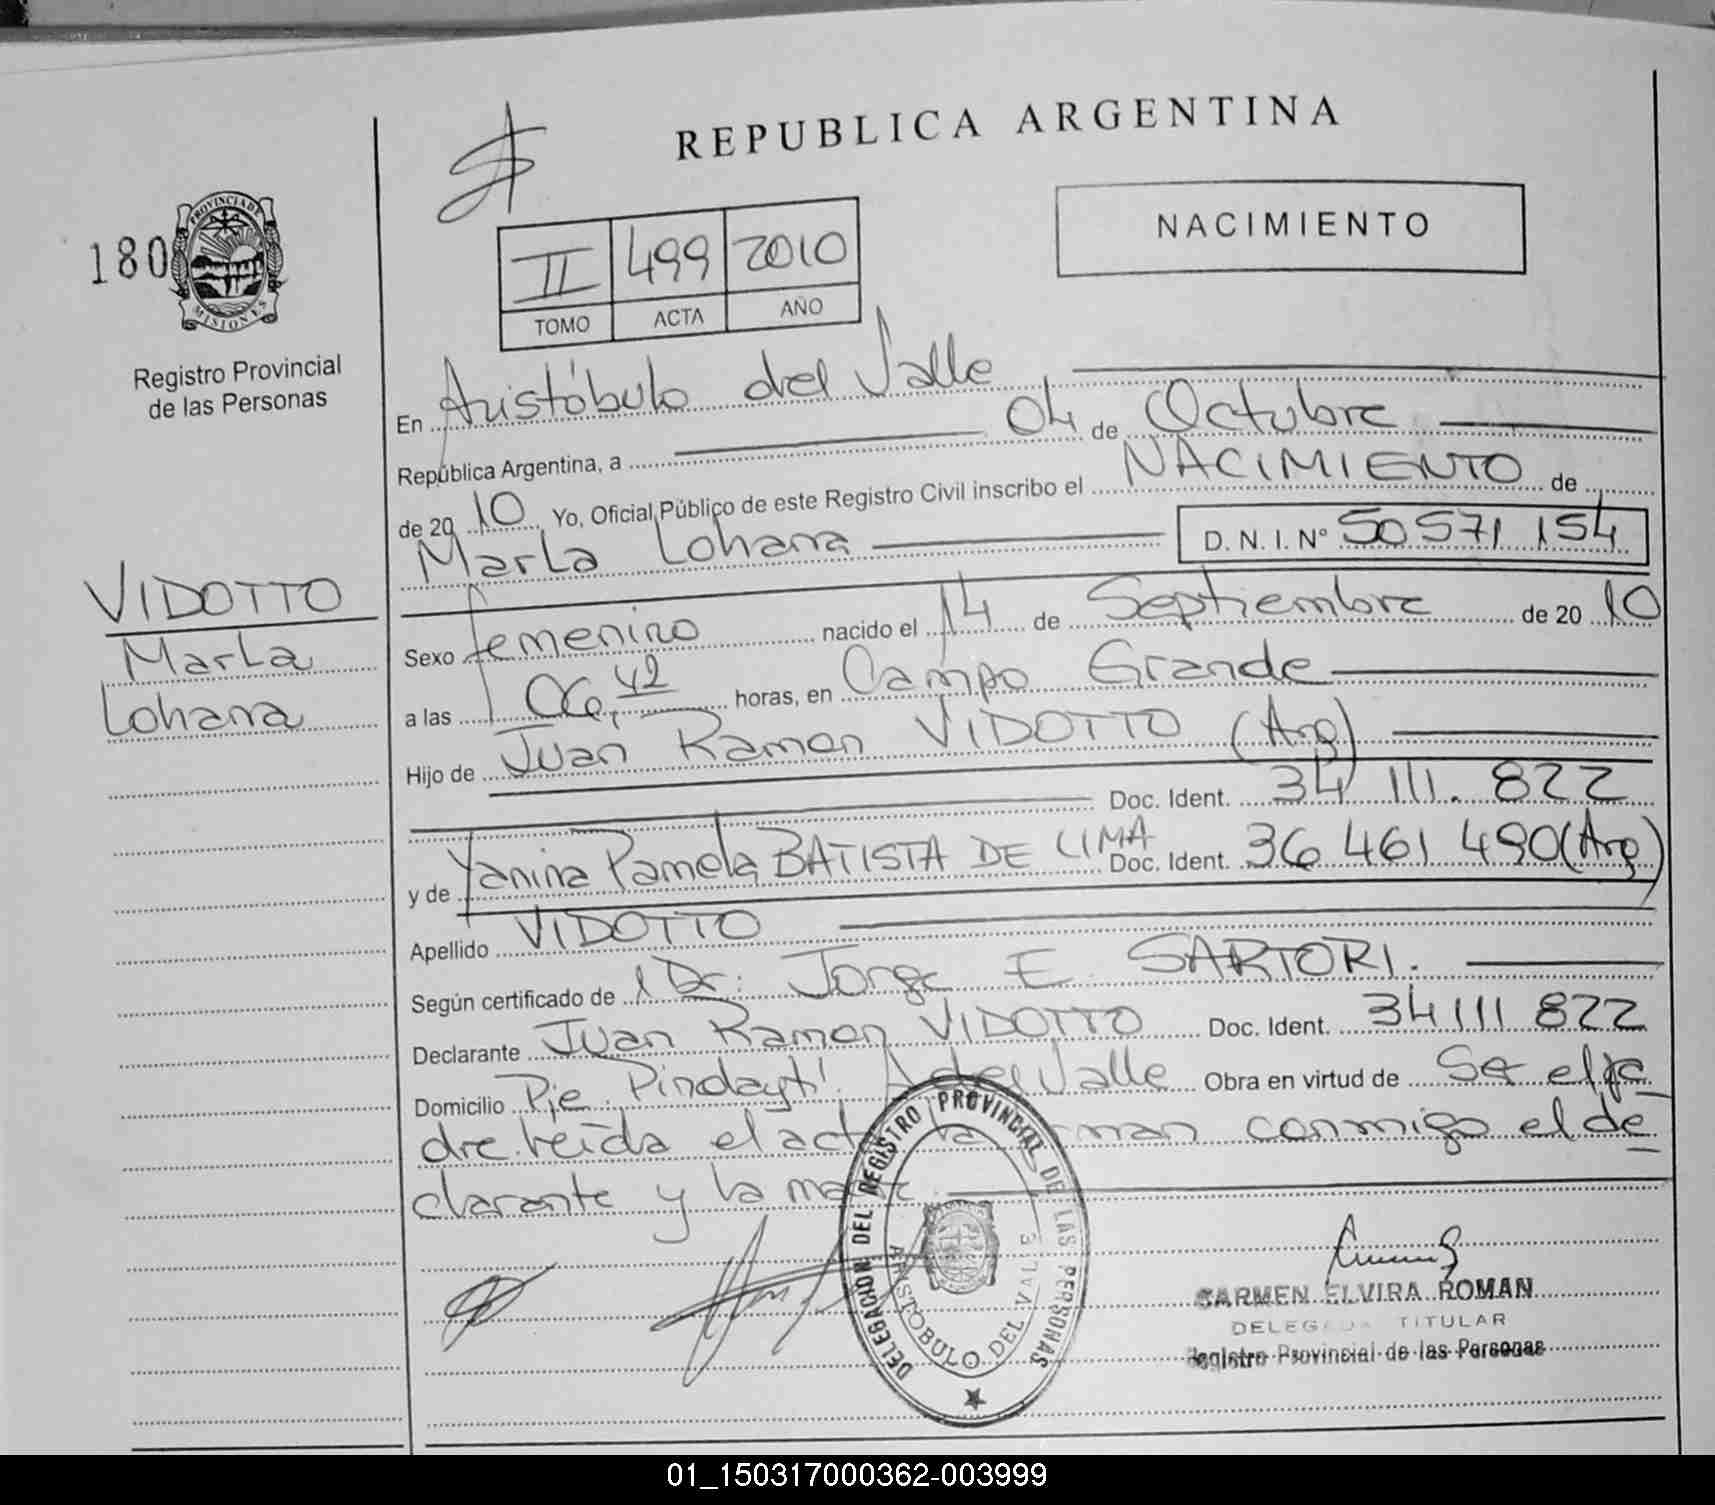 REPUBLICA ARGENTINA
NACIMIENTO
180
PROVINCIA DE
MISIONES
Registro Provincial
de las Personas
II 499 2010
TOMO ACTA AÑO
En Aristóbulo del Valle
República Argentina, a 04 de Octubre
de 20 10 Yo, Oficial Público de este Registro Civil inscribo el NACIMIENTO de
Marla Lohana D. N. I. Nº 50 571 154
VIDOTTO
Marla
Lohana
Sexo femenino nacido el 14 de Septiembre de 20 10
a las 06,42 horas, en Campo Grande
Hijo de Juan Ramon VIDOTTO (Arg)
Doc. Ident. 34 111. 822
y de Yanina Pamela BATISTA DE LIMA Doc. Ident. 36 461 490 (Arg)
Apellido VIDOTTO
Según certificado de Dr. Jorge E. SARTORI.
Declarante Juan Ramon VIDOTTO Doc. Ident. 34111 822
Domicilio Pje. Pindaytí. A del Valle Obra en virtud de Ser el pa
dre. Leída el acta la firman conmigo el de
clarante y la madre
DELEGACION DEL REGISTRO PROVINCIAL DE LAS PERSONAS
ARISTOBULO DEL VALLE
CARMEN ELVIRA ROMAN
DELEGADA TITULAR
Registro Provincial de las Personas
01_150317000362-003999